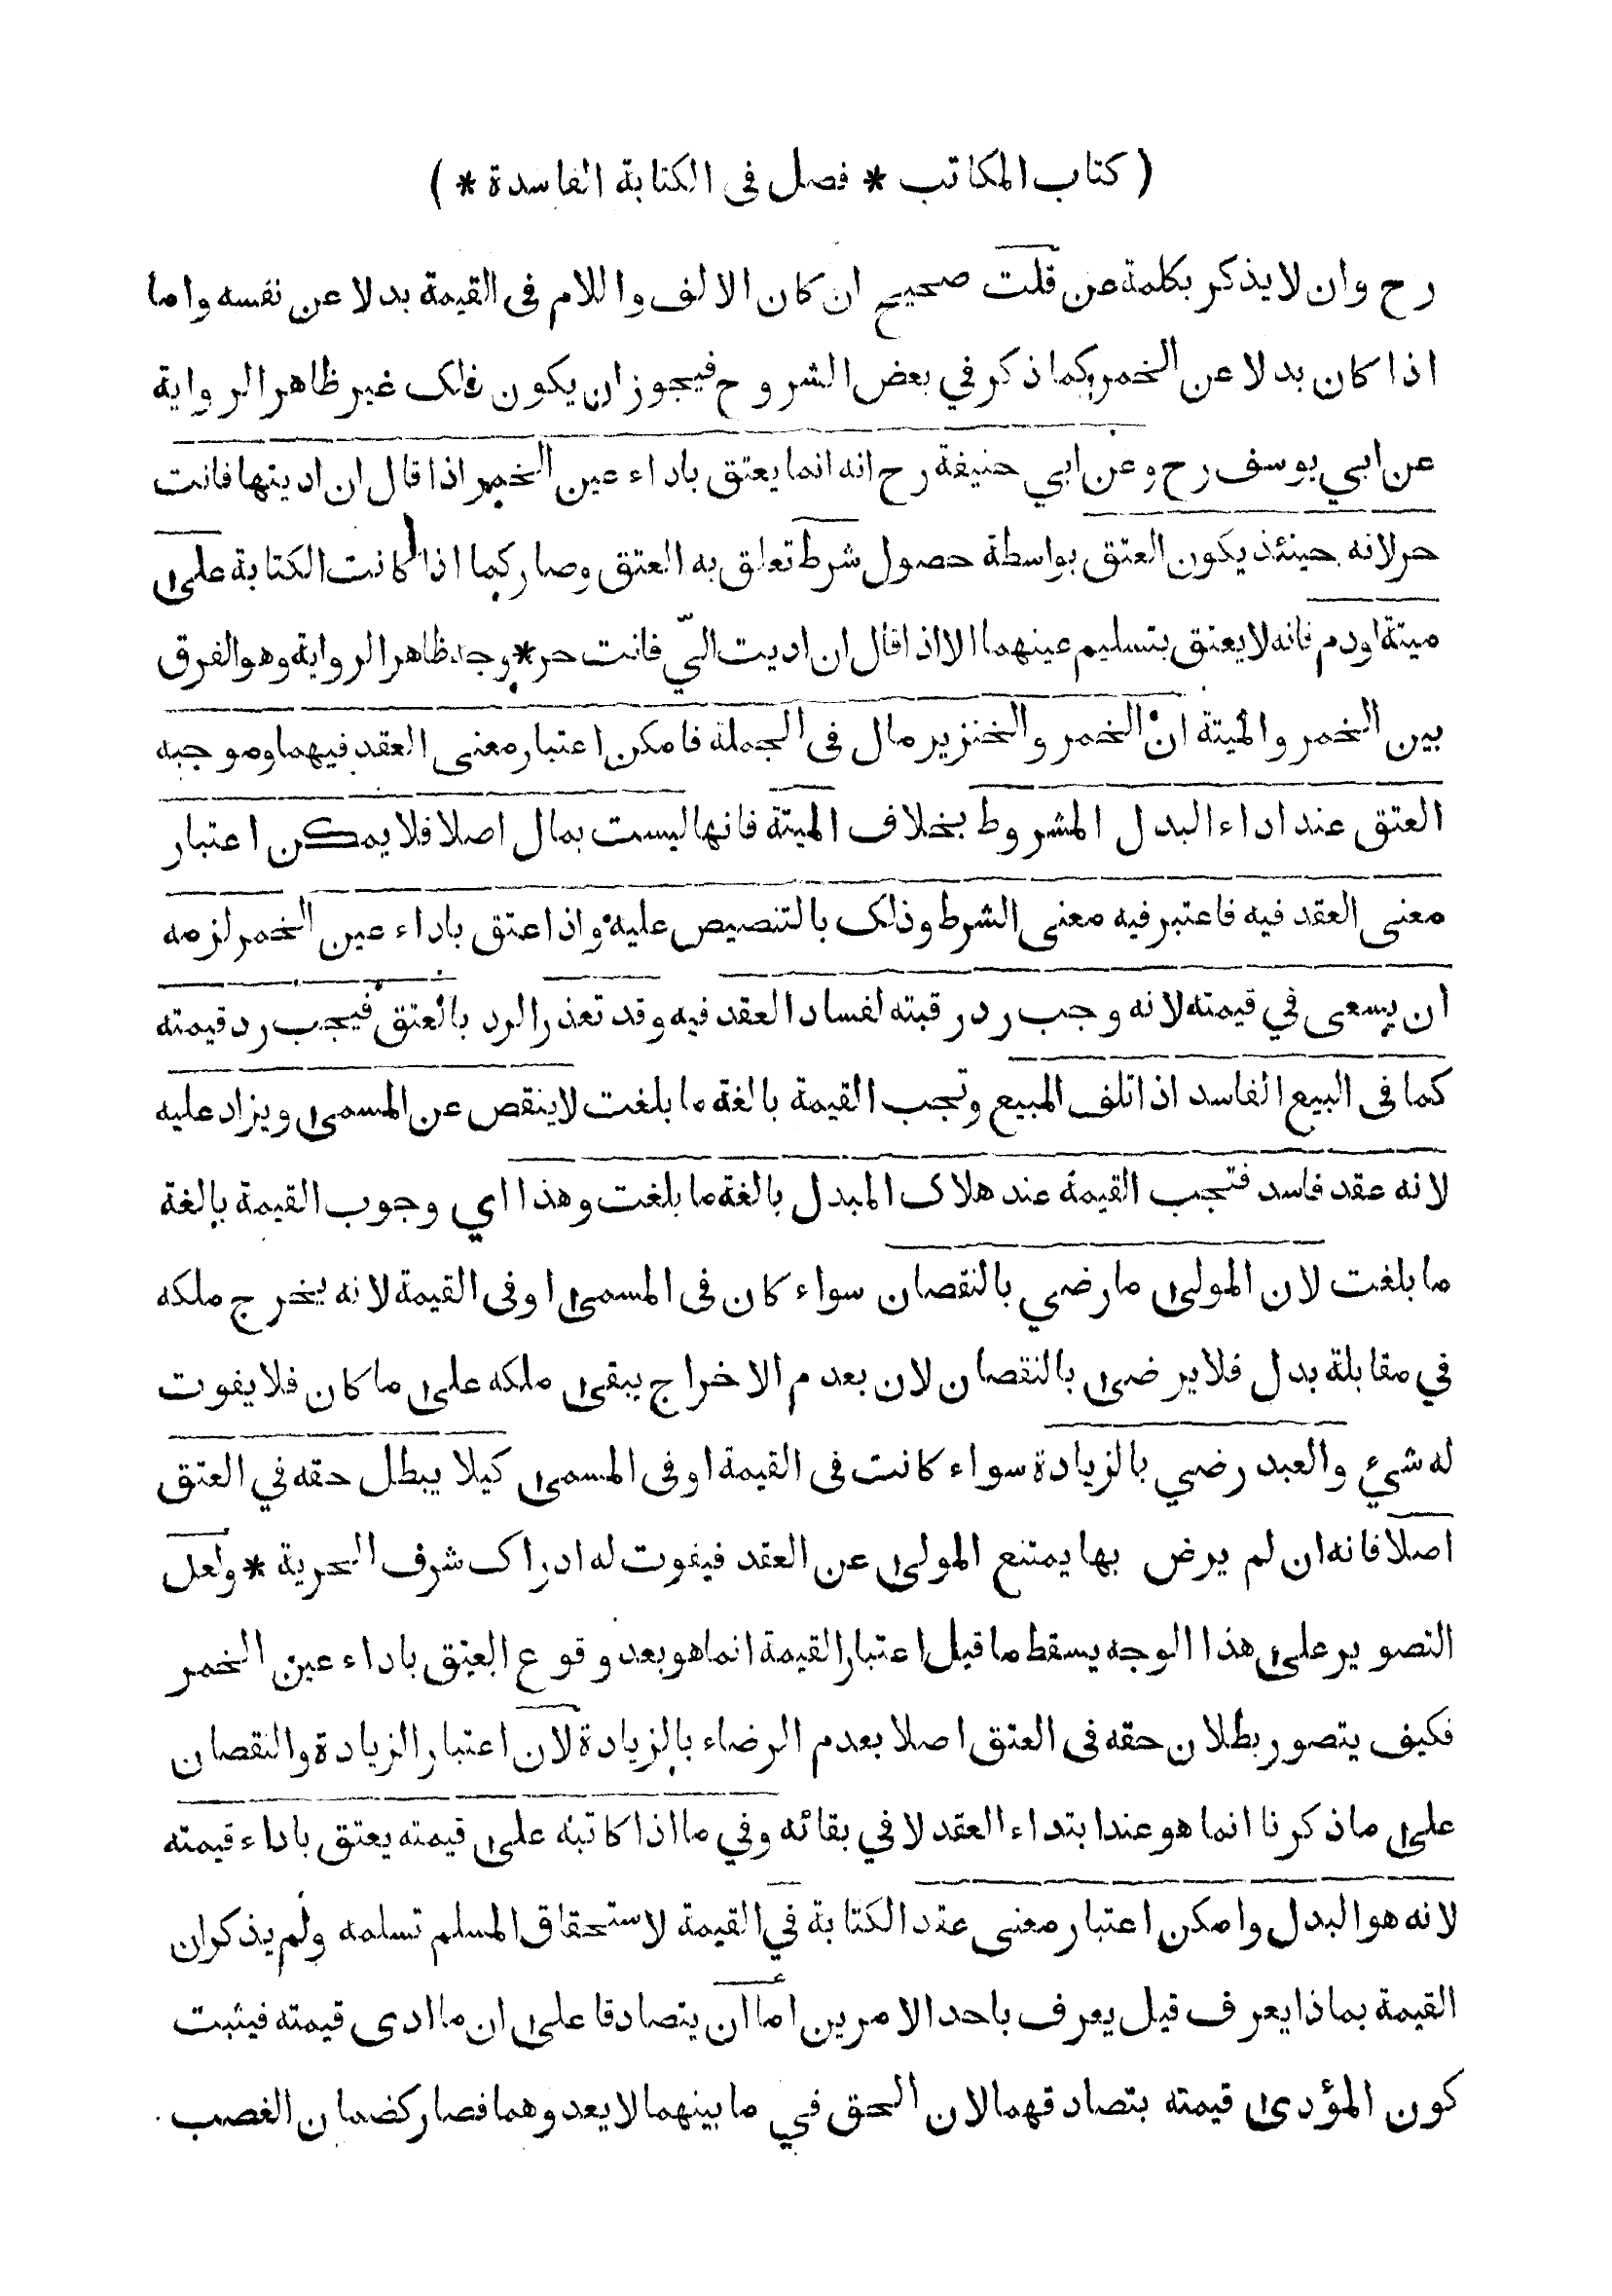 ( كتاب المكاتب * فصل فى الكتابة الفاسدة * )
رح وان لا يذكر بكلمة عن قلت صحيح ان كان الالف واللام فى القيمة بدلا عن نفسه واما
اذا كان بدلا عن الخمر كما ذكر في بعض الشروح فيجوز ان يكون ذلك غير ظاهر الرواية
عن ابي يوسف رح وعن ابي حنيفة رح انه انما يعتق باداء عين الخمر اذا قال ان اديتها فانت
حر لانه حينئذ يكون العتق بواسطة حصول شرط تعلق به العتق وصار كما اذا كانت الكتابة على
ميتة او دم فانه لا يعتق بتسليم عينهما الا اذا قال ان اديت اليّ فانت حر * وجه ظاهر الرواية وهو الفرق
بين الخمر والميتة ان الخمر والخنزير مال فى الجملة فامكن اعتبار معنى العقد فيهما وموجبه
العتق عند اداء البدل المشروط بخلاف الميتة فانها ليست بمال اصلا فلا يمكن اعتبار
معنى العقد فيه فاعتبر فيه معنى الشرط وذلك بالتنصيص عليه واذا عتق باداء عين الخمر لزمه
ان يسعى في قيمته لانه وجب رد رقبته لفساد العقد فيه وقد تعذر الرد بالعتق فيجب رد قيمته
كما فى البيع الفاسد اذا تلف المبيع وتجب القيمة بالغة ما بلغت لا ينقص عن المسمى ويزاد عليه
لانه عقد فاسد فتجب القيمة عند هلاك المبدل بالغة ما بلغت وهذا اي وجوب القيمة بالغة
ما بلغت لان المولى ما رضي بالنقصان سواء كان فى المسمى او فى القيمة لانه يخرج ملكه
في مقابلة بدل فلا يرضى بالنقصان لان بعدم الاخراج يبقى ملكه على ما كان فلا يفوت
له شيء والعبد رضي بالزيادة سواء كانت فى القيمة او فى المسمى كيلا يبطل حقه في العتق
اصلا فانه ان لم يرض بها يمتنع المولى عن العقد فيفوت له ادراك شرف الحرية * ولعل
التصوير على هذا الوجه يسقط ما قيل اعتبار القيمة انما هو بعد وقوع العتق باداء عين الخمر
فكيف يتصور بطلان حقه فى العتق اصلا بعدم الرضاء بالزيادة لان اعتبار الزيادة والنقصان
على ما ذكرنا انما هو عند ابتداء العقد لا في بقائه وفي ما اذا كاتبه على قيمته يعتق باداء قيمته
لانه هو البدل وامكن اعتبار معنى عقد الكتابة في القيمة لاستحقاق المسلم تسلمه ولم يذكر ان
القيمة بماذا يعرف قيل يعرف باحد الامرين اما ان يتصادقا على ان ما ادى قيمته فيثبت
كون المؤدى قيمته بتصادقهما لان الحق في ما بينهما لا يعدوهما فصار كضمان الغصب